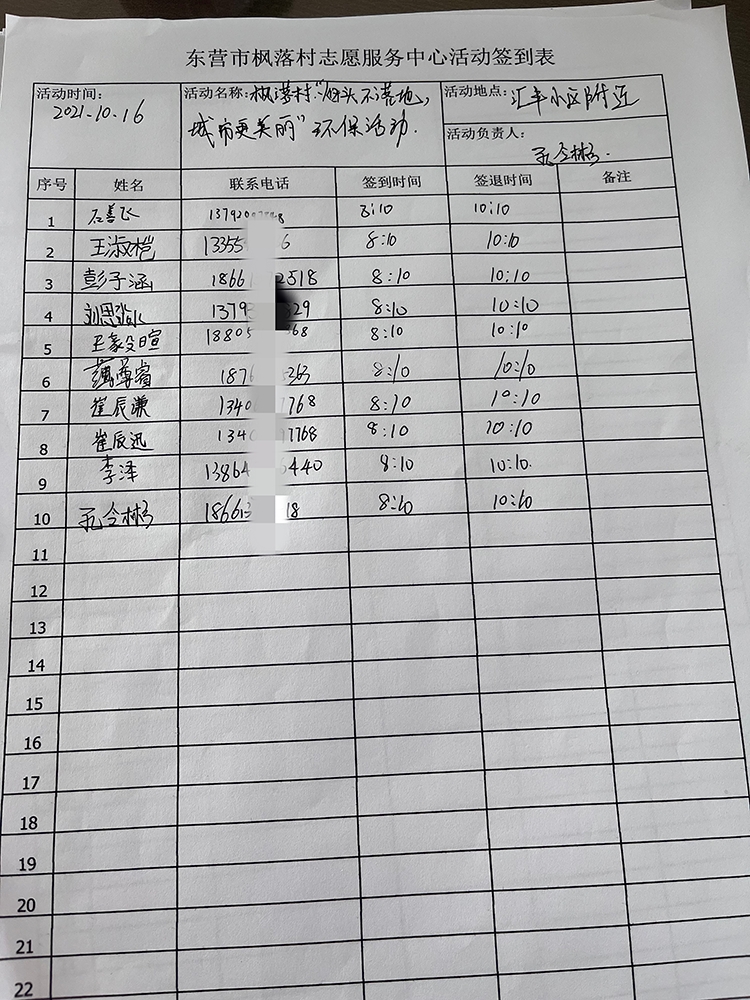 东营市枫落村志愿服务中心活动签到表
活动时间: 活动名称: 枫落村:"烟头不落地, 活动地点: 汇丰小区附近
2021.10.16 城市更美丽"环保活动. 活动负责人:
孔令彬.
序号 姓名 联系电话 签到时间 签退时间 备注
1 石善飞 1379200 8:10 10:10
2 王淑桤 13355 6 8:10 10:10
3 彭子涵 1866 2518 8:10 10:10
4 刘思淼 1379 329 8:10 10:10
5 王 暄 18805 368 8:10 10:10
6 尊睿 187 363 8:10 10:10
7 崔辰谦 1340 1768 8:10 10:10
8 崔辰迅 134 1768 8:10 10:10
9 李泽 13864 6440 8:10 10:10.
10 孔令彬 18661 18 8:10 10:10
11
12
13
14
15
16
17
18
19
20
21
22